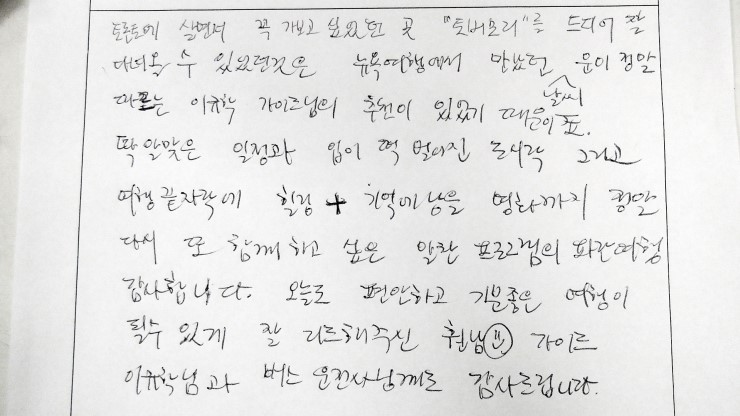 토론토에 살면서 꼭 가보고 싶었던 곳 "토버모리"를 드디어 잘
다녀올 수 있었던것은 뉴욕여행에서 만났던 날씨 운이 정말
따르는 이규학 가이드님의 추천이 있었기 때문이죠.
딱 알맞은 일정과 입이 떡 벌어진 도시락 그리고
여행 끝자락에 힐링 + 기억에 남을 영화까지 정말
다시 또 함께하고 싶은 알찬 프로그램의 파란여행
감사합니다. 오늘도 편안하고 기분좋은 여행이
될수 있게 잘 리드해주신 훈남 가이드
이규학님과 버스 운전사님께도 감사드립니다.